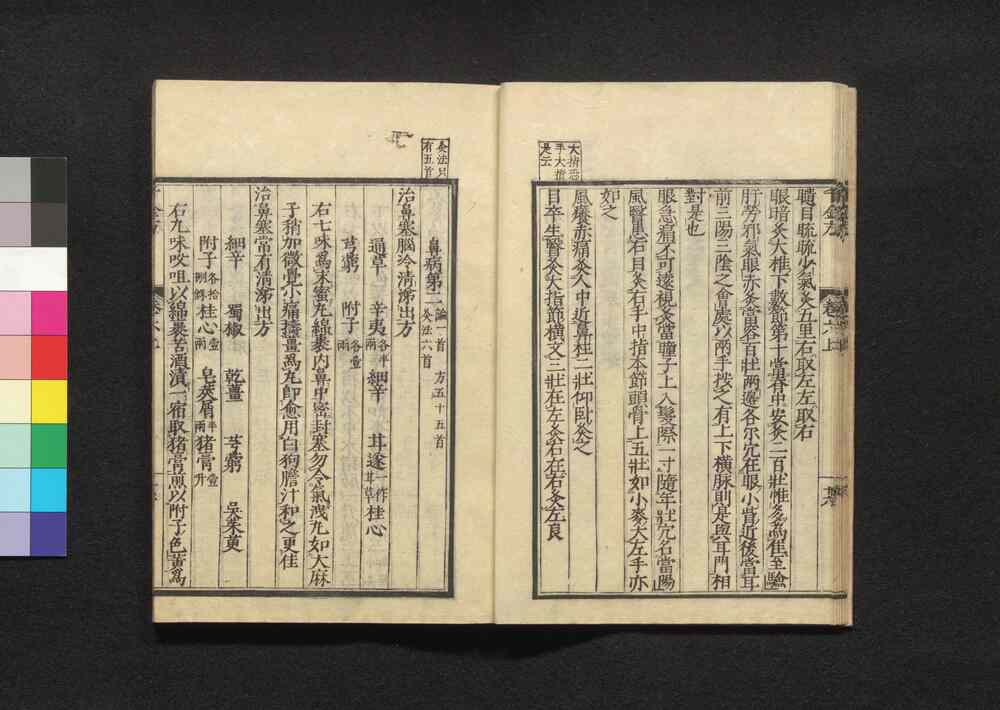 䀮目䀮䀮少氣灸五里右取左左取右
眼暗灸大椎下數節第十當脊中安灸二百壯惟多爲佳至驗
肝勞邪氣眼赤灸當容百壯兩邊各尔穴在眼小眥近後當耳
前三陽三陰之會處以兩手按之有上下橫脉則是與耳門相
對是也
眼急痛不可遠視灸當瞳子上入髮際一寸隨年壯穴名當陽
風瞖患右目灸右手中指本節頭骨上五壯如小麥大左手亦
如之
風癢赤痛灸人中近鼻柱二壯仰臥灸之
目卒生瞖灸大指節橫文三壯在左灸右在右灸左良
卷六上
灸法只
有五首
鼻病第二論一首 方五十五首
灸法六首
治鼻塞腦冷清涕出方
通草 辛夷各半兩 細辛 甘遂一作甘草 桂心
芎藭 附子各壹兩
右七味爲末蜜丸綿裹内鼻中密封塞勿令氣洩丸如大麻
子稍加微覺小痛擣薑爲丸卽愈用白狗膽汁和之更佳
治鼻塞常有清涕出方
細辛 蜀椒 乾薑 芎藭 吳茱萸
附子各拾捌銖 桂心壹兩 皂莢屑半兩 猪膏壹升
右九味㕮咀以綿裹苦酒漬一宿取猪膏煎以附子色黃爲